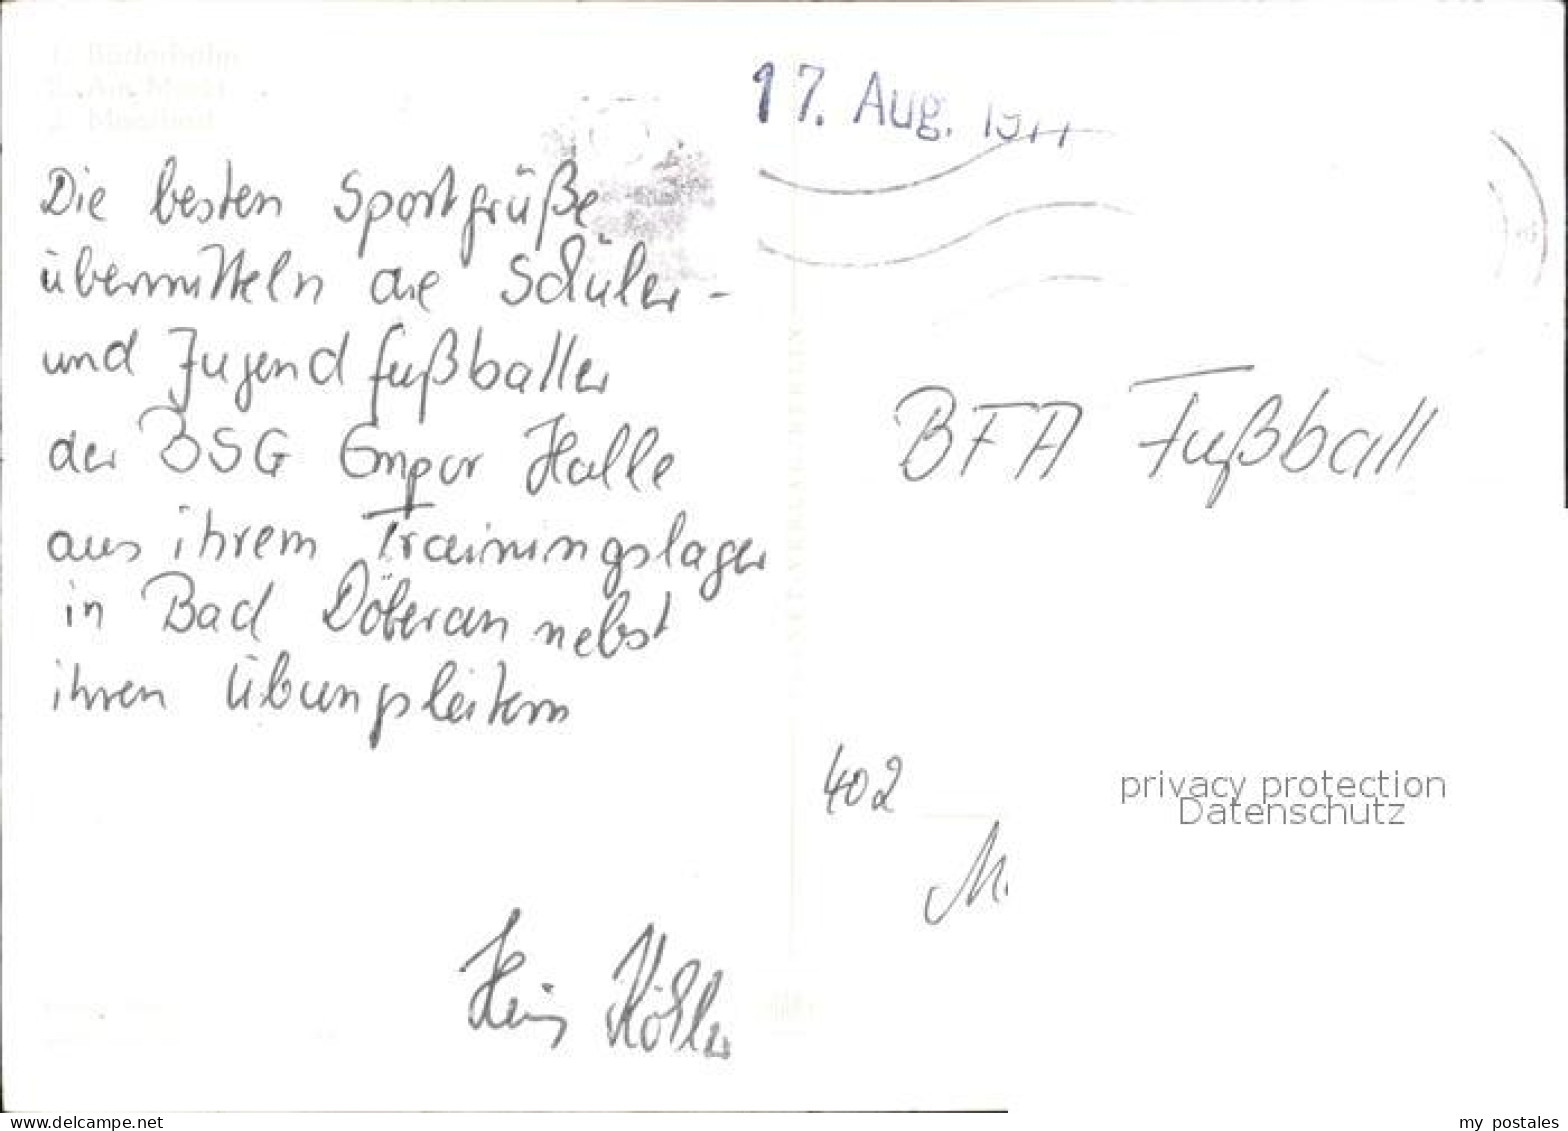 1. Bäderbahn
2. Am Markt
3. Moorbad
17. Aug. 1977
Die besten Sportgrüße
übermitteln die Schüler-
und Jugendfußballer
der BSG Empor Halle
aus ihrem Trainingslager
in Bad Döberan nebst
ihren Übungsleitern
Heinz Köhler
BFA Fußball
402
M.
privacy protection
Datenschutz
www.delcampe.net
my_postales